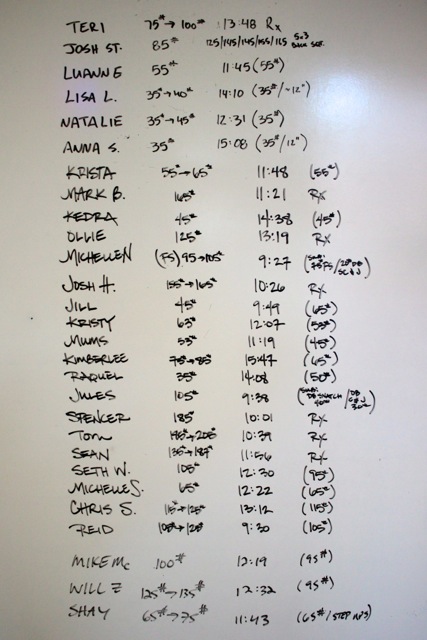 TERI 75#→100# 13:48 Rx
JOSH ST. 85# 125/145/145/155/165 5x3 BACK SQT.
LUANNE 55# 11:45 (55#)
LISA L. 35#→40# 14:10 (35#/~12")
NATALIE 35#→45# 12:31 (35#)
ANNA S. 35# 15:08 (35#/12")
KRISTA 55#→65# 11:48 (55#)
MARK B. 165# 11:21 Rx
KEDRA 45# 14:38 (45#)
OLLIE 125# 13:19 Rx
MICHELLE N (FS) 95→105# 9:27
JOSH H. 155#→165# 10:26 Rx
JILL 45# 9:49 (65#)
KRISTY 63# 12:07 (55#)
MUMS 53# 11:19 (45#)
KIMBERLEE 75#→85# 15:47 (65#)
RAQUEL 35# 14:08 (50#)
JULES 105# 9:38
SPENCER 185# 10:01 Rx
TOM 10:39 Rx
SEAN 135#→187# 11:56 Rx
SETH W. 105# 12:30 (95#)
MICHELLE S. 65# 12:22 (65#)
CHRIS S. 115#→125# 13:12 (115#)
REID 105#→125# 9:30 (105#)
MIKE Mc 100# 12:19 (95#)
WILL 125#→135# 12:32 (95#)
SHAY 65#→75# 11:43 (65#/STEP UPS)